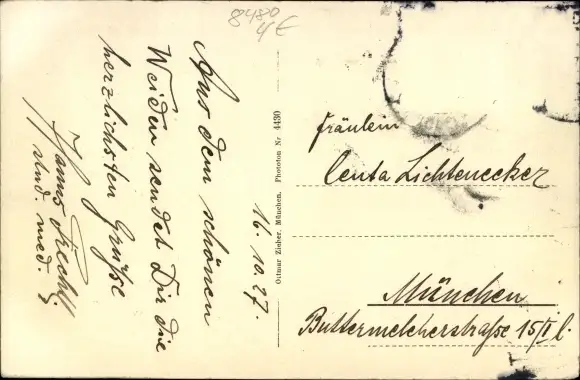 8480
4€
Aus dem schönen
Weiden sendet Dir die
herzlichsten Grüße
Hanns
stud. med.
16. 10. 27.
Ottmar Zieher, München. Phototon Nr 4430
Fräulein
Centa Lichtenecker
München
Buttermelcherstraße 15/II l.